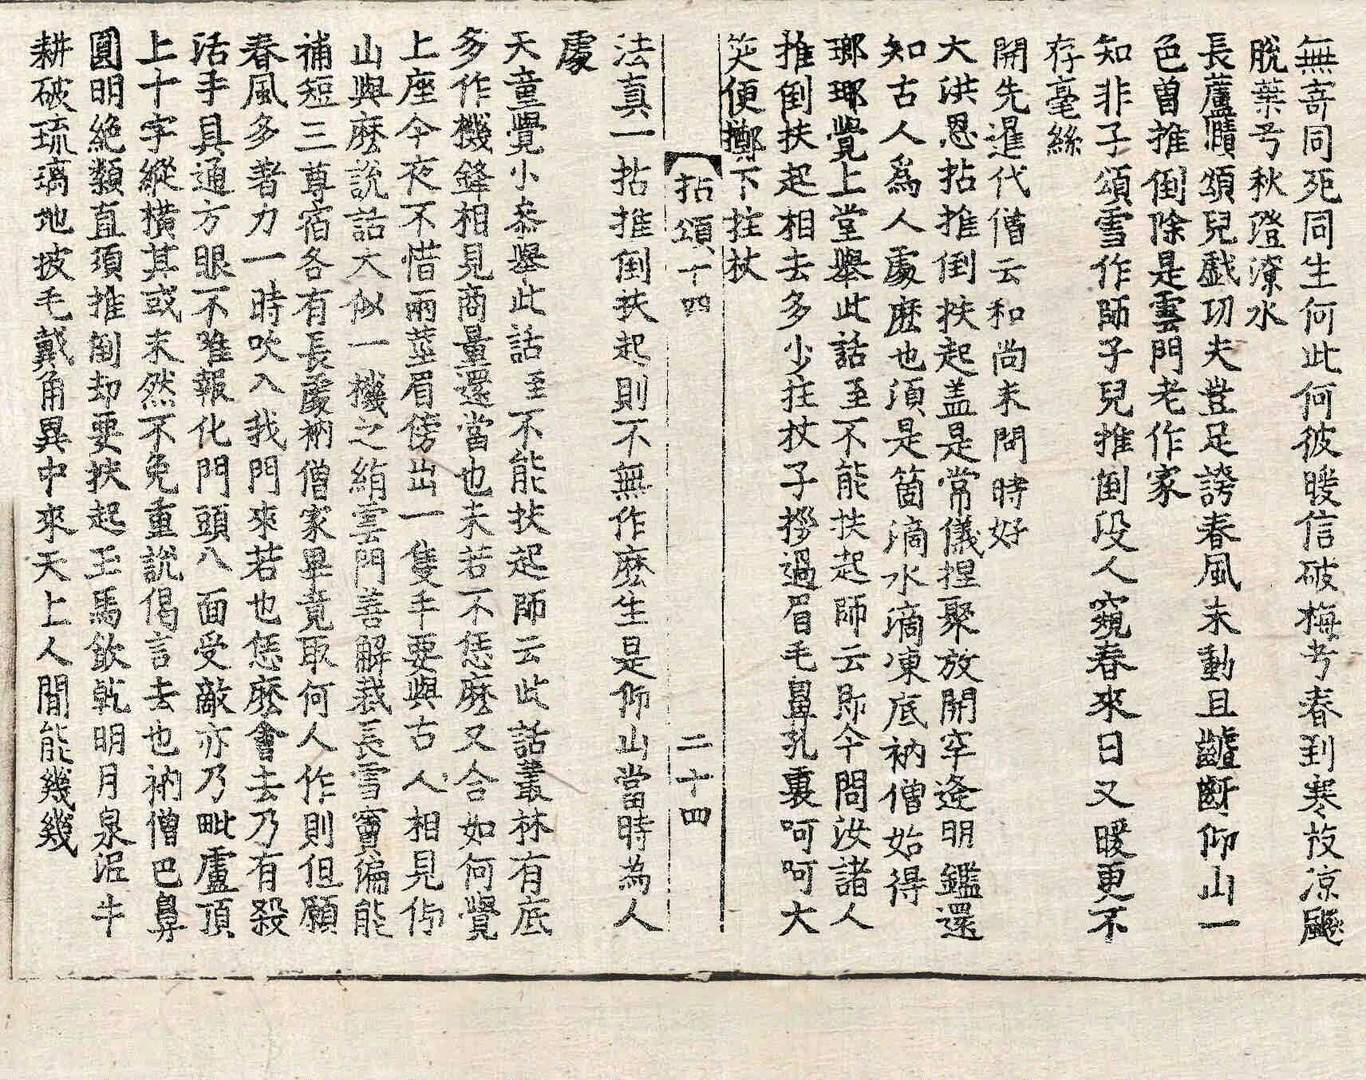 無寄同死同生何此何彼暖信破梅兮春到寒枝凉飈
脫葉兮秋澄潦水
長蘆賾頌兒戲功夫豈足誇春風未動且齟齖仰山一
色曾推倒除是雲門老作家
知非子頌雪作師子兒推倒段人窺春來日又暖更不
存毫絲
開先暹代僧云和尚未問時好
大洪恩拈推倒扶起盖是常儀揑聚放開罕逢明鑑還
知古人爲人處麽也須是箇滴水滴凍底衲僧始得
瑯瑘覺上堂擧此話至不能扶起師云即今問汝諸人
推倒扶起相去多少拄杖子拶過眉毛鼻孔裏呵呵大
笑便擲下拄杖
拈頌十四 二十四
法真一拈推倒扶起則不無作麽生是仰山當時為人
處
天童覺小叅擧此話至不能扶起師云此話叢林有底
多作機鋒相見商量還當也未若不恁麽又合如何覺
上座今夜不惜兩莖眉傍出一隻手要與古人相見仰
山與麽說話大似一機之絹雲門善解裁長雪竇偏能
補短三尊宿各有長處衲僧家畢竟取何人作則但願
春風多著力一時吹入我門來若也恁麽會去乃有殺
活手具通方眼不唯報化門頭八面受敵亦乃毗盧頂
上十字縱橫其或未然不免重說偈言去也衲僧巴鼻
圓明絶類直須推倒却要扶起玉馬飲乾明月泉泥牛
耕破琉璃地披毛戴角異中來天上人間能幾幾